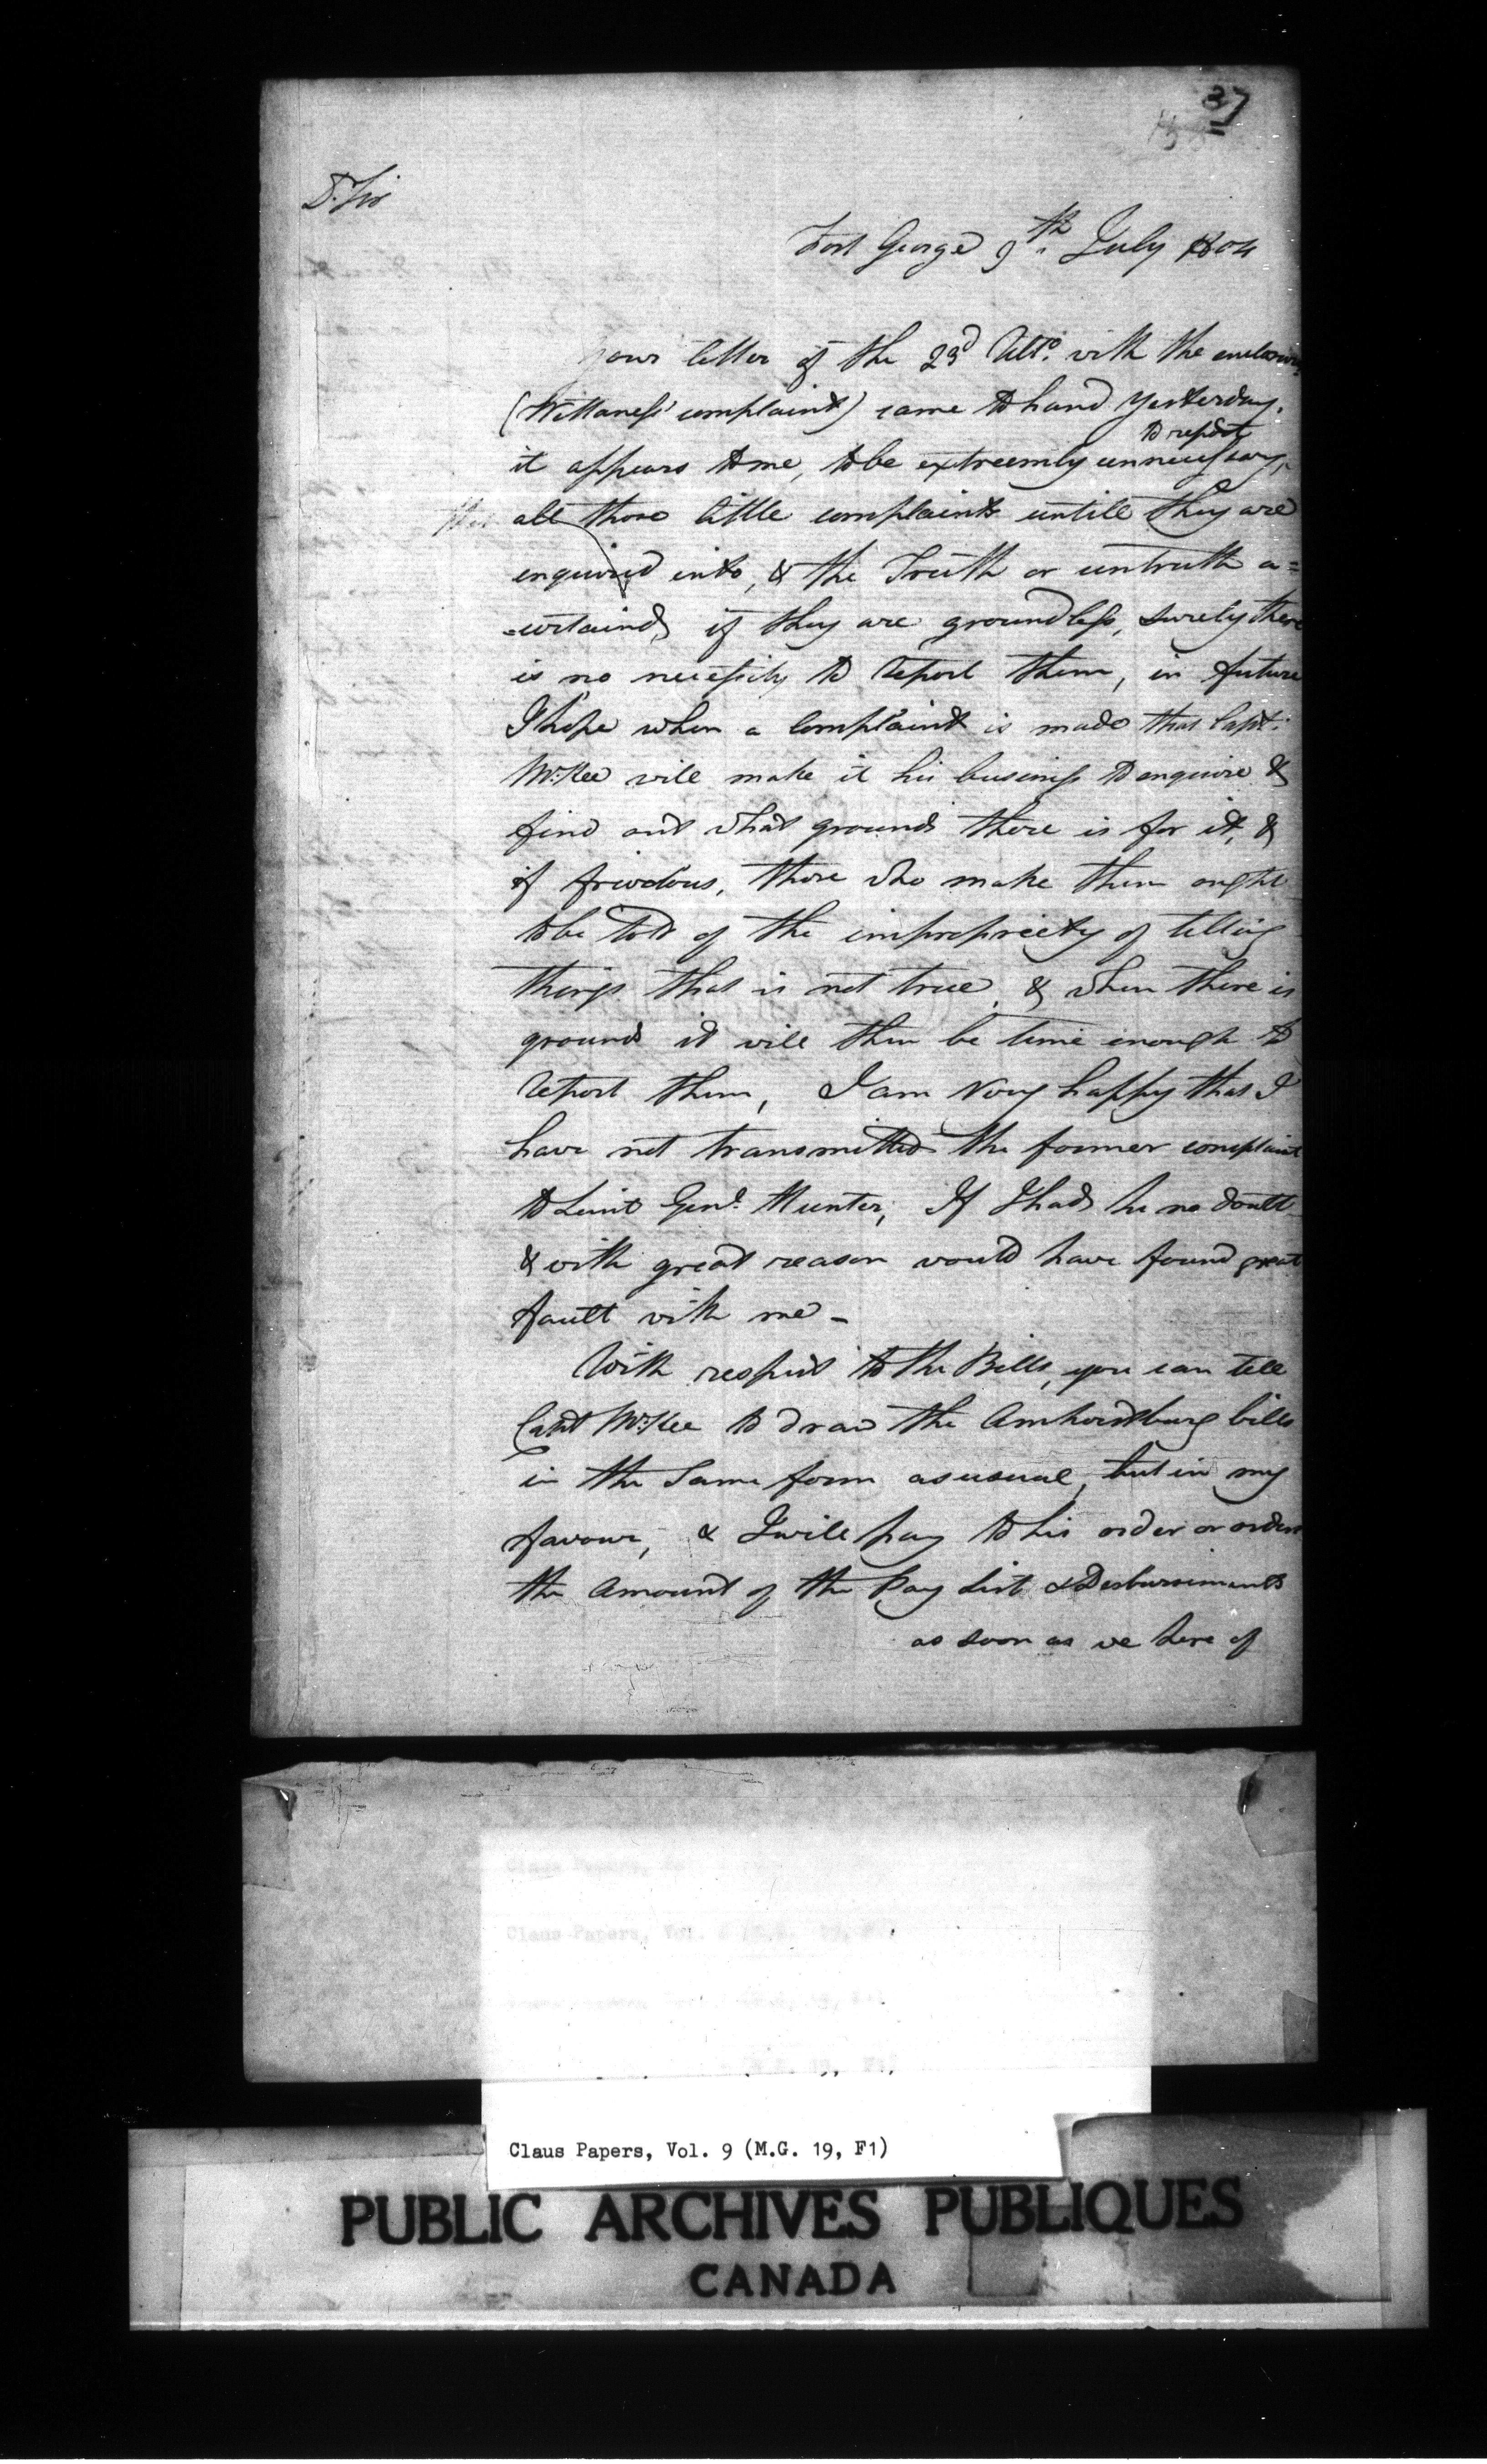 37
D. Sir
Fort George 9th July 1804
Your letter of the 23d Ulto. with the enclosure
(Wittaness' complaint) came to hand yesterday.
to report
it appears to me, to be extreemly unnecessary,
all those little complaints untill they are
enquired into, & the Truth or untruth a=
=certaind, if they are groundless, surely there
is no necessity to report them, in future
I hope when a complaint is made that Capt.
McKee will make it his business to enquire &
find out what grounds there is for it, &
if frivolous, those who make them ought
to be told of the impropriety of telling
things that is not true, & when there is
grounds it will then be time enough to
report them, I am very happy that I
have not transmitted the former complaint
to Leint Genl. Hunter, If I had he no doubt
& with great reason would have found great
fault with me -
With respect to the Bills, you can tell
Capt McKee to draw the Amherstburg bills
in the same form as usual, but in my
favour, & I will pay to his order or orders
the Amount of the Pay List & Disbursements
as soon as we here of
Claus Papers, Vol. 9 (M.G. 19, F1)
PUBLIC ARCHIVES PUBLIQUES
CANADA